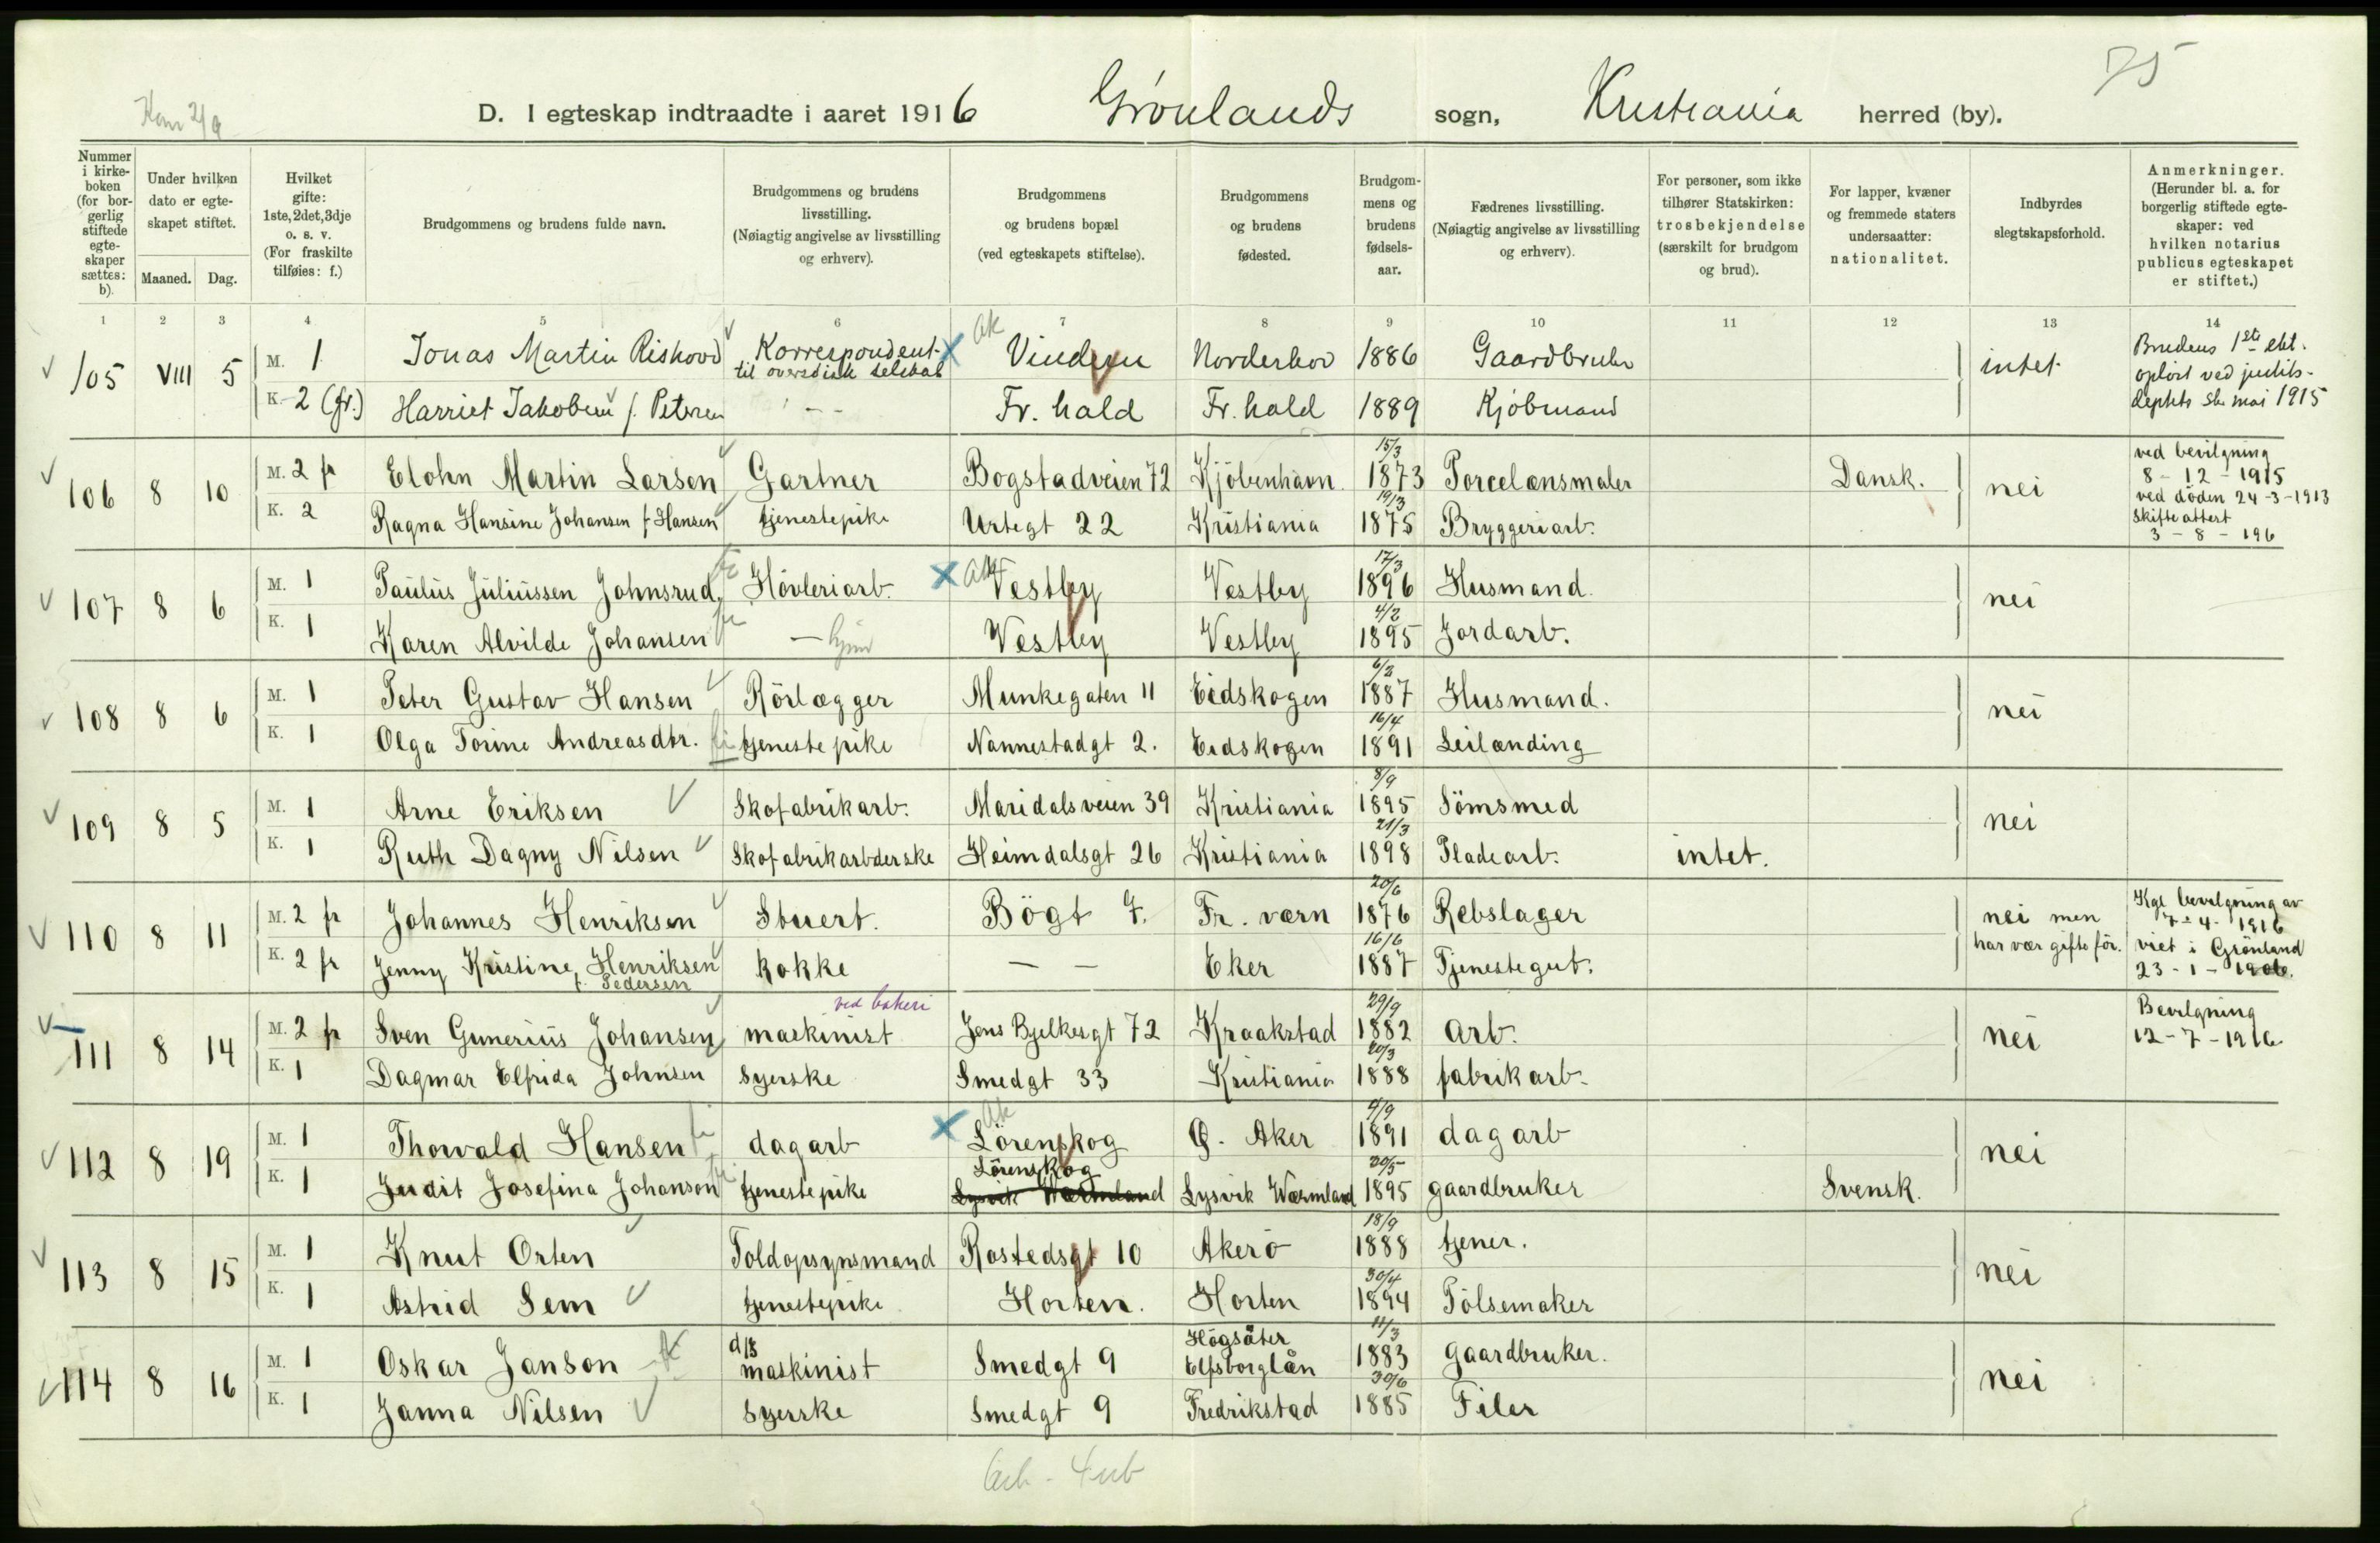 75
D. I egteskap indtraadte i aaret 1916 Grønlands sogn, Kristiania herred (by).
Nummer i kirkeboken (for borgerlig stiftede egteskaper sættes: b).
Under hvilken dato er egteskapet stiftet.
Maaned. Dag.
Hvilket gifte: 1ste, 2det, 3dje o. s. v. (For fraskilte tilføies: f.)
Brudgommens og brudens fulde navn.
Brudgommens og brudens livsstilling. (Nøiagtig angivelse av livsstilling og erhverv).
Brudgommens og brudens bopæl (ved egteskapets stiftelse).
Brudgommens og brudens fødested.
Brudgommens og brudens fødselsaar.
Fædrenes livsstilling. (Nøiagtig angivelse av livsstilling og erhverv).
For personer, som ikke tilhører Statskirken: trosbekjendelse (særskilt for brudgom og brud).
For lapper, kvæner og fremmede staters undersaatter: nationalitet.
Indbyrdes slegtskapsforhold.
Anmerkninger. (Herunder bl. a. for borgerlig stiftede egteskaper: ved hvilken notarius publicus egteskapet er stiftet.)
1 2 3 4 5 6 7 8 9 10 11 12 13 14
105 VIII 5 M. 1 Jonas Martin Rishovd Korrespondent til oversøisk selskab Ak Vindern Norderhov 1886 Gaardbruker intet
K. 2 (fr.) Harriet Jakobsen f. Petersen - - Fr. hald Fr. hald 1889 Kjöbmand
Brudens 1ste ekt. opløst ved justits-deptets mai 1915
106 8 10 M. 2 fr Elohn Martin Larsen Gartner Bogstadveien 72 Kjöbenhavn 15/3 1873 Porcelænsmaler Dansk. nei
K. 2 Ragna Hansine Johansen f. Hansen tjenestepike Urtegt 22 Kristiania 19/3 1875 Bryggeriarb.
ved bevilgning 8 - 12 - 1915
ved döden 24-3-1913
Skifteattest 3 - 8 - 196
107 8 6 M. 1 Paulus Juliussen Johnsrud Hövleriarb. Ak Vestby Vestby 17/3 1896 Husmand. nei
K. 1 Karen Alvilde Johansen - hjem Vestby Vestby 4/2 1895 Jordarb.
108 8 6 M. 1 Peter Gustav Hansen Rörlægger Munkegaten 11 Eidskogen 6/2 1887 Husmand. nei
K. 1 Olga Torine Andreasdtr. tjenestepike Nannestadgt 2. Eidskogen 16/4 1891 Leilænding
109 8 5 M. 1 Arne Eriksen Skofabrikarb. Maridalsveien 39 Kristiania 8/9 1895 Sömsmed nei
K. 1 Ruth Dagny Nilsen Skofabrikarbderske Heimdalsgt 26 Kristiania 21/3 1898 Pladearb. intet.
110 8 11 M. 2 fr Johannes Henriksen Stuert. Bögt 7. Fr. værn 20/6 1876 Rebslager nei men har vær gifte för.
K. 2 fr Jenny Kristine Henriksen f. Pedersen kokke - - Eker 16/6 1887 Tjenestegut.
Kgl bevilgning av 7 - 4 - 1916
viet i Grönland 23 - 1 - 1906.
111 8 14 M. 2 fr Sven Gunerius Johansen maskinist ved bakeri Jens Bjelkesgt 72 Kraakstad 29/9 1882 Arb. nei
K. 1 Dagmar Elfrida Johnsen Syerske Smedgt 33 Kristiania 20/3 1888 fabrikarb.
Bevilgning 12 - 7 - 1916
112 8 19 M. 1 Thorvald Hansen dagarb Ak Lörenskog Ö. Aker 9/9 1891 dagarb nei
K. 1 Judit Josefina Johanson tjenestepike Lörenskog Lysvik Wærmland Lysvik Wærmland 30/5 1895 gaardbruker Svensk.
113 8 15 M. 1 Knut Orten Toldopsynsmand Rostedsgt 10 Akerö 18/9 1888 tjener. nei
K. 1 Astrid Sem tjenestepike Horten. Horten 30/4 1894 Pölsemaker
114 8 16 M. 1 Oskar Janson d/s maskinist Smedgt 9 Högsäter Elfsborglän 11/3 1883 gaardbruker. nei
K. 1 Janna Nilsen Syerske Smedgt 9 Fredrikstad 30/6 1885 Filer